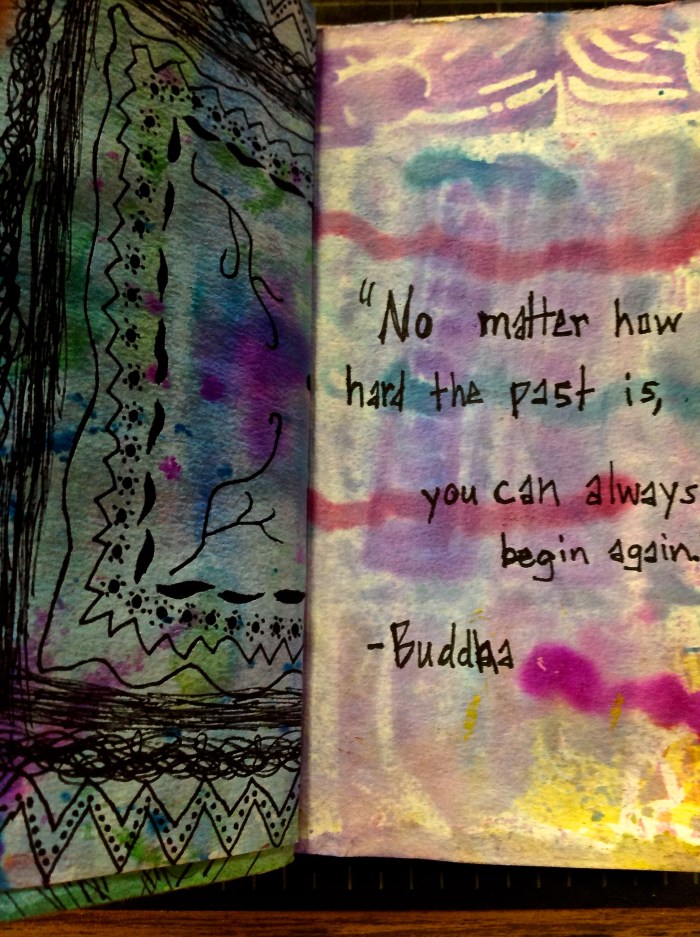 “No matter how
hard the past is,
you can always
begin again.
-Buddha